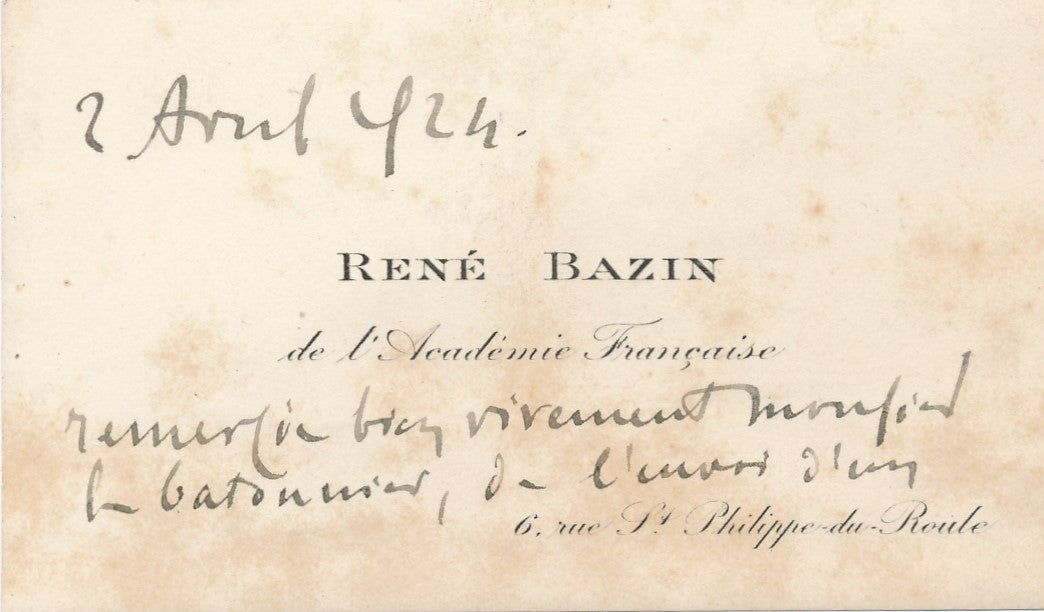 2 Avril 1924.
RENÉ BAZIN
de l'Académie Française
remercie bien vivement monsieur
le batonnier, de l'envoi d'un
6, rue St Philippe-du-Roule